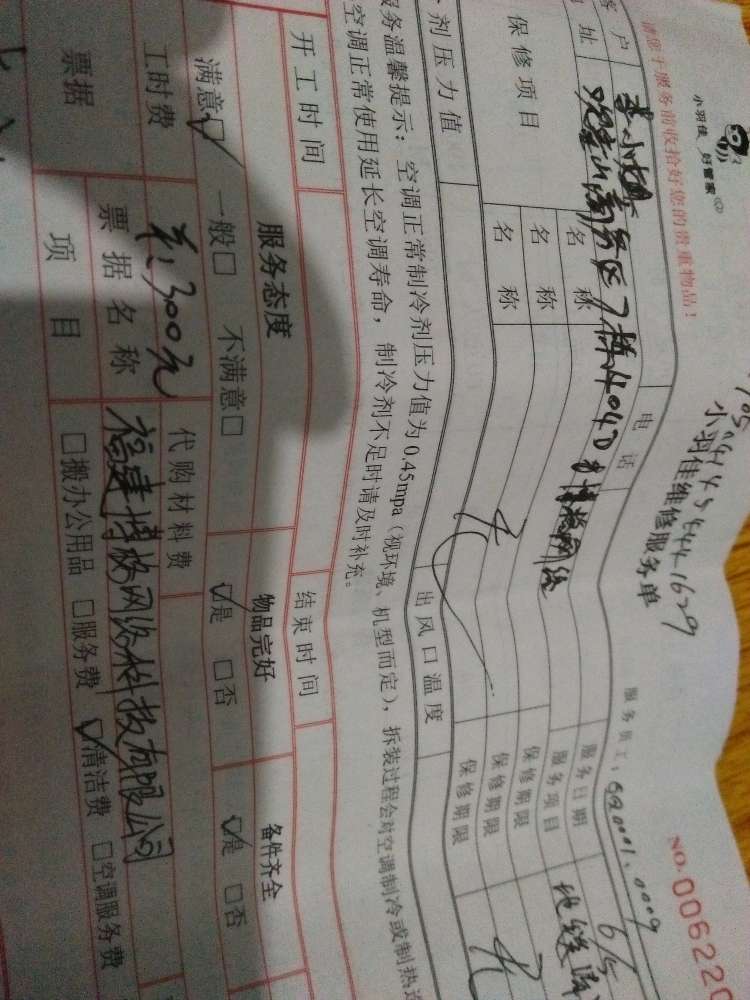 小羽佳 好管家
小羽佳维修服务单
NO.006220
请您于服务前收拾好您的贵重物品!
服务员工:
客户 李小姐 电话 服务日期 6/5
地址 观音山商务区7栋404D 博格网络 服务项目 地毯清
保修项目 名称 保修期限
名称 保修期限
名称 保修期限
剂压力值 出风口温度
服务温馨提示:空调正常制冷剂压力值为0.45mpa(视环境、机型而定),拆装过程会对空调制冷或制热
空调正常使用延长空调寿命,制冷剂不足时请及时补充。
开工时间 结束时间
服务态度 物品完好 备件齐全
满意☑ 一般□ 不满意□ ☑是 □否 ☑是 □否
工时费 300元 代购材料费
票据 票据名称 福建博格网络科技有限公司
项目 □搬办公用品 □服务费 ☑清洁费 □空调服务费